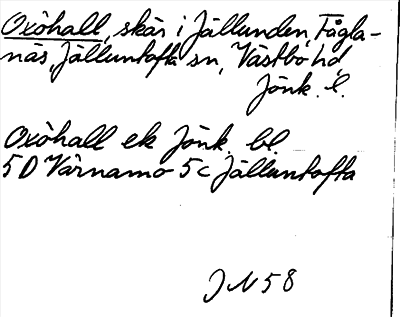 Oxöhall, skär i Jällunden, Fågla-
näs, Jälluntofta sn, Västbo hd,
Jönk. l.
Oxöhall ek Jönk. bl.
5D Värnamo 5c Jälluntofta
JN 58